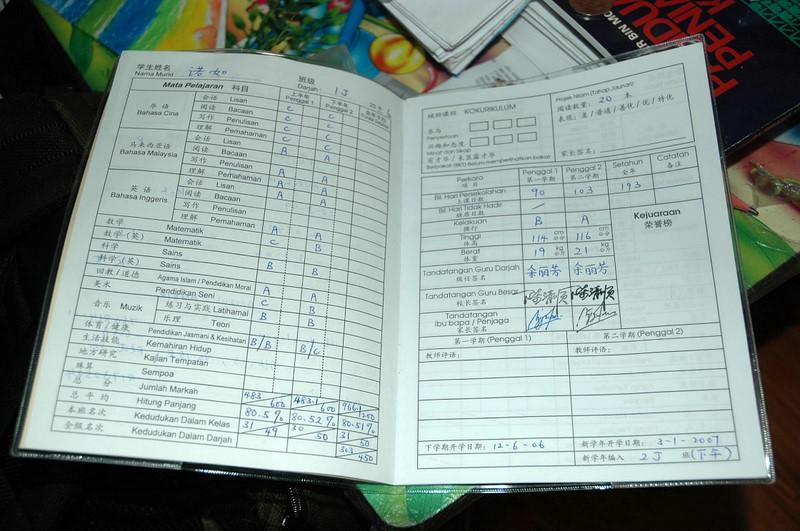 学生姓名 诺如 班级
Nama Murid Darjah: 1J
Mata Pelajaran 科目 上半年 Penggal 1 下半年 Penggal 2
华语 Bahasa Cina
会话 Lisan C C
阅读 Bacaan C C
写作 Penulisan C C
理解 Pemahaman C C
马来西亚语 Bahasa Malaysia
会话 Lisan
阅读 Bacaan A A
写作 Penulisan
理解 Pemahaman A A
英语 Bahasa Inggeris
会话 Lisan A A
阅读 Bacaan A A
写作 Penulisan
理解 Pemahaman
数学 Matematik A A
数学(英) Matematik C B
科学 Sains
科学(英) Sains B B
回教/道德 Agama Islam / Pendidikan Moral
美术 Pendidikan Seni A A
音乐 Muzik 练习与实践 Latihamal C B
乐理 Teori B B
体育/健康 Pendidikan Jasmani & Kesihatan
生活技能 Kemahiran Hidup B/B B/C
地方研究 Kajian Tempatan
珠算 Sempoa
总分 Jumlah Markah 483/600 483.1/600 966.1/1200
总平均 Hitung Panjang 80.5% 80.52% 80.51%
本班名次 Kedudukan Dalam Kelas 31/49 30/50 31/50
全级名次 Kedudukan Dalam Darjah 303/450
辅助课程 KOKURIKULUM
参与
Penyertaan
兴趣和态度
Minat dan Sikap
有才华/未显露才华
Berbakat (BKT)/Belum memperlihatkan bakat
Projek Nilam (Tahap Jauhari)
阅读数量: 20 本
表现: 差/普通/善优/优/特优
家长签名:
Perkara 项目 Penggal 1 第一学期 Penggal 2 第二学期 Setahun 全年 Catatan 备注
Bil Hari Persekolahan 上课日数 90 103 193
Bil Hari Tidak Hadir 缺席日数
Kelakuan 操行 B A
Tinggi 体高 114 cm 116 cm
Berat 体重 19 kg 21 kg
Kejuaraan
荣誉榜
Tandatangan Guru Darjah 余丽芳 余丽芳
级任签名
Tandatangan Guru Besar
校长签名
Tandatangan
Ibu bapa / Penjaga
家长签名
第一学期 (Penggal 1) 第二学期 (Penggal 2)
教师评语: 教师评语:
下学期开学日期: 12-6-06 新学年开学日期: 3-1-2007
新学年编入 2J 班(下午)
R BIN MO